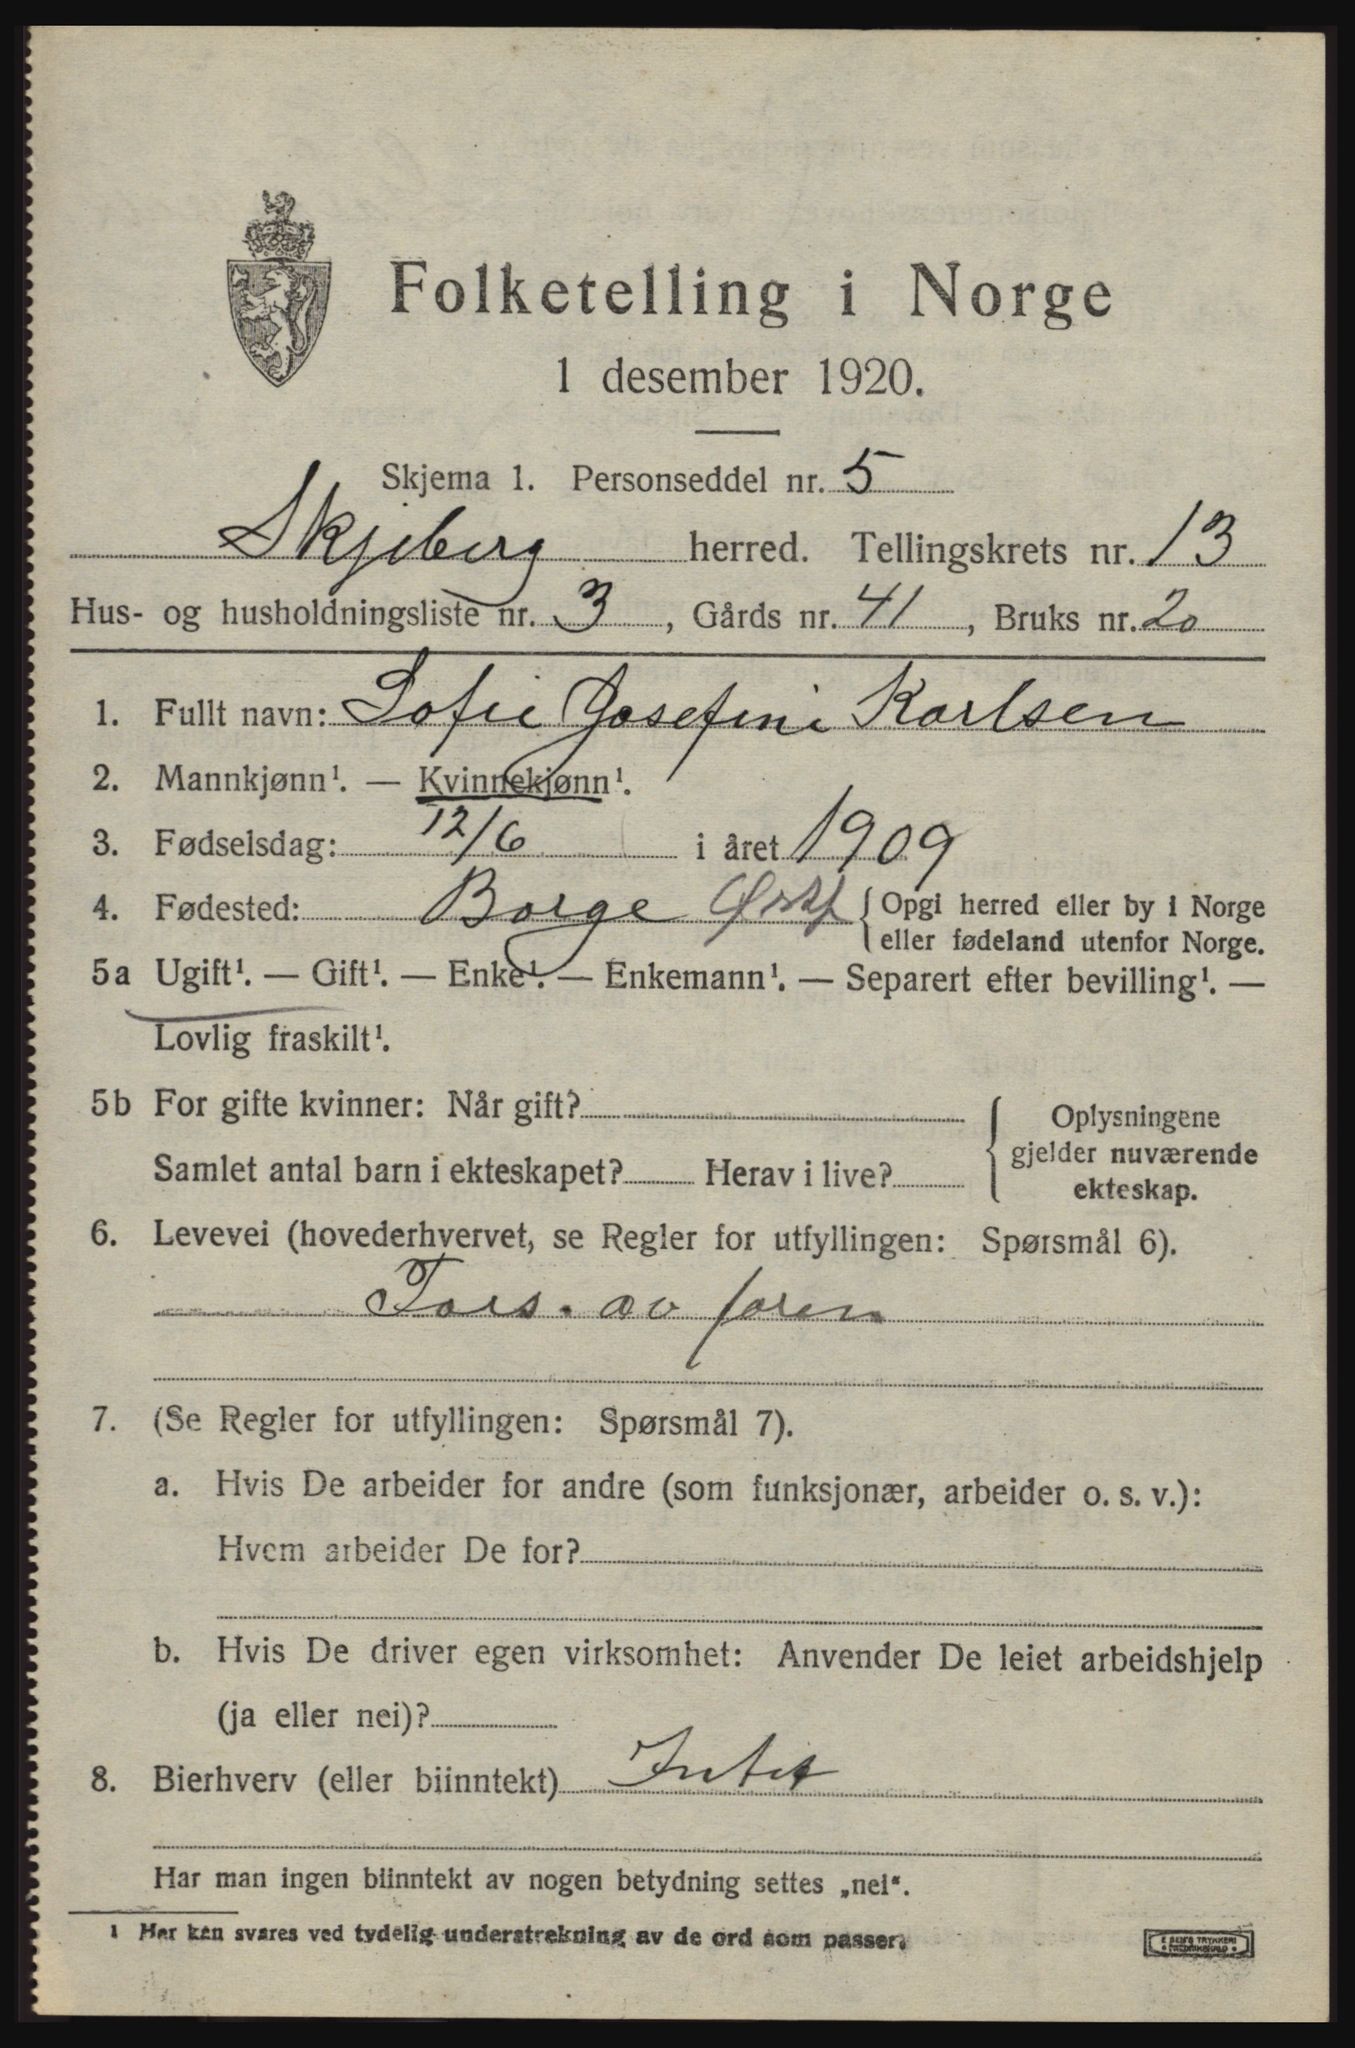 Folketelling i Norge
1 desember 1920.
Skjema 1. Personseddel nr. 5
Skjeberg herred. Tellingskrets nr. 13
Hus- og husholdningsliste nr. 3, Gårds nr. 41, Bruks nr. 20
1. Fullt navn: Sofie Josefine Karlsen
2. Mannkjønn¹. — Kvinnekjønn¹.
3. Fødselsdag: 12/6 i året 1909
4. Fødested: Borge Østf { Opgi herred eller by i Norge
eller fødeland utenfor Norge.
5a Ugift¹. — Gift¹. — Enke¹. — Enkemann¹. — Separert efter bevilling¹. —
Lovlig fraskilt¹.
5b For gifte kvinner: Når gift?
Samlet antal barn i ekteskapet? Herav i live?
{ Oplysningene
gjelder nuværende
ekteskap.
6. Levevei (hovederhvervet, se Regler for utfyllingen: Spørsmål 6).
Fors. av faren
7. (Se Regler for utfyllingen: Spørsmål 7).
a. Hvis De arbeider for andre (som funksjonær, arbeider o. s. v.):
Hvem arbeider De for?
b. Hvis De driver egen virksomhet: Anvender De leiet arbeidshjelp
(ja eller nei)?
8. Bierhverv (eller biinntekt) Intet
Har man ingen biinntekt av nogen betydning settes „nei“.
1 Her kan svares ved tydelig understrekning av de ord som passer.